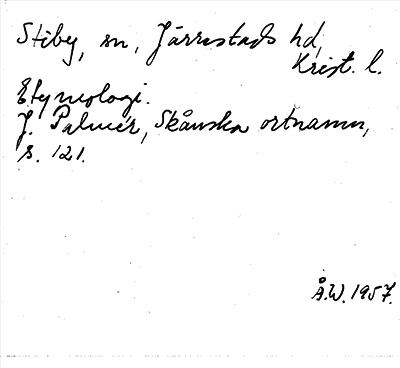 Stiby, sn, Järrestads hd,
Krist. l.
Etymologi.
J. Palmér, Skånska ortnamn,
s. 121.
Å.W. 1957.